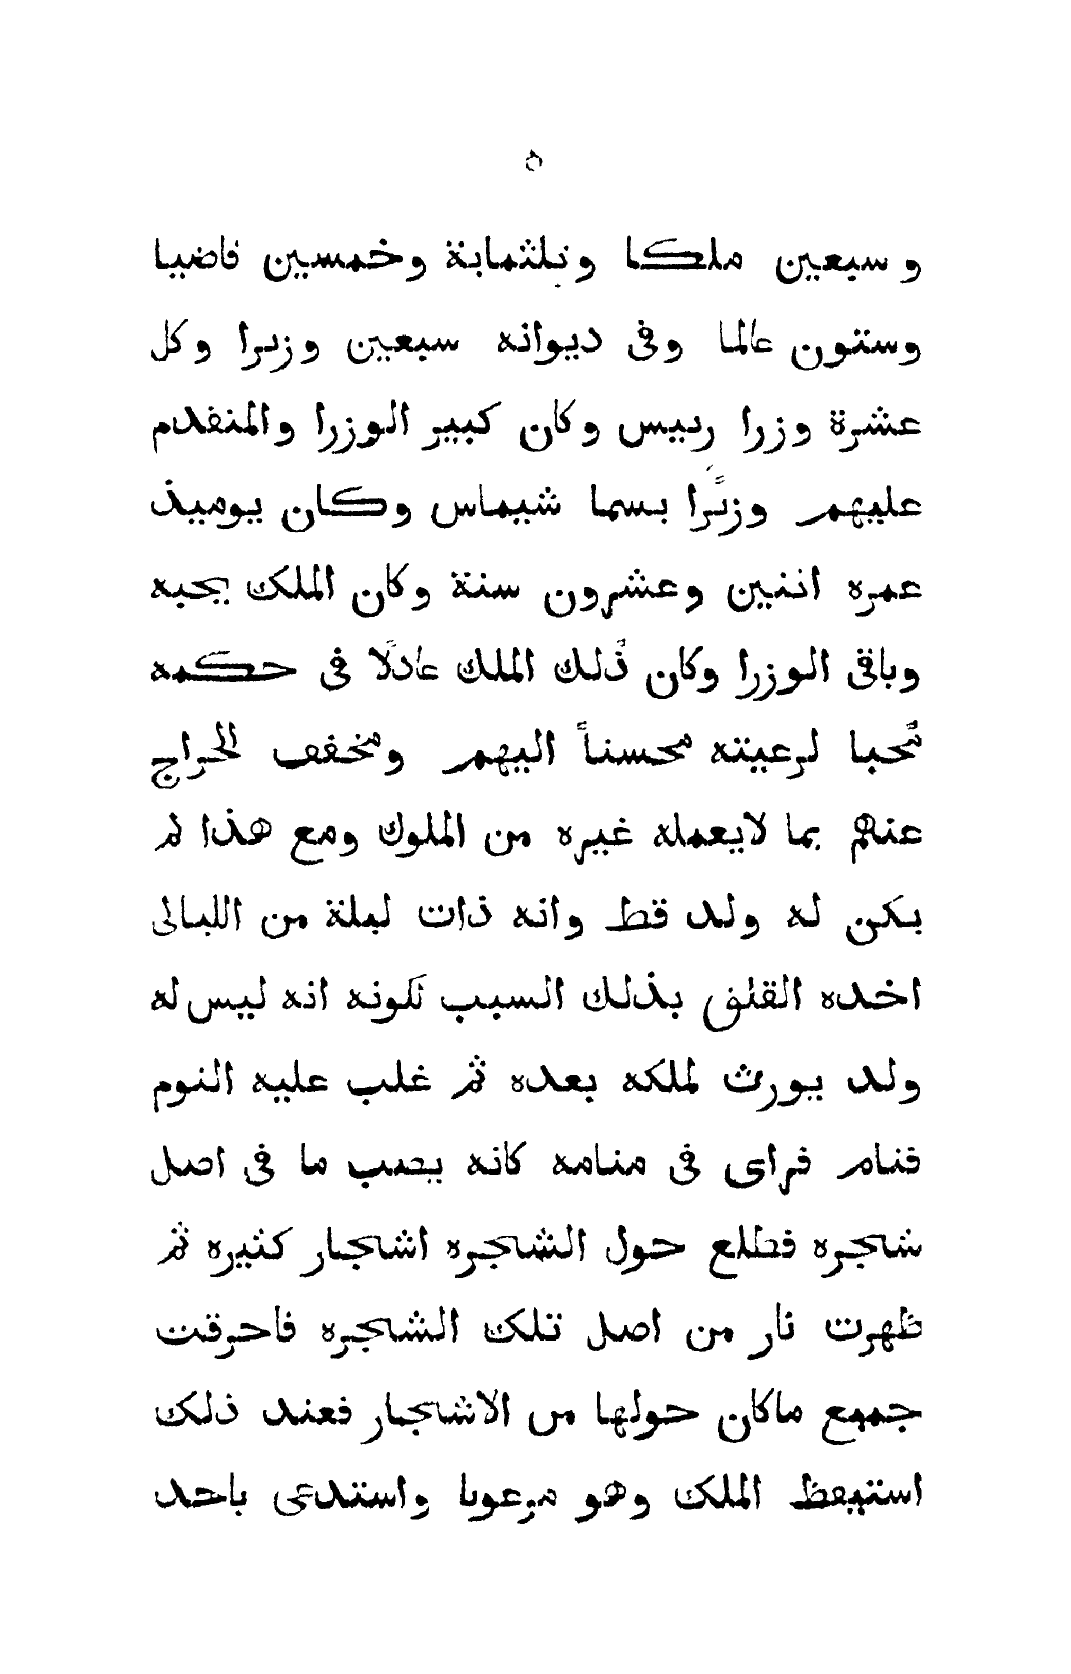 ٥
وسبعين ملكا وثلثماية وخمسين قاضيا
وستون عالما وفى ديوانه سبعين وزيرا وكل
عشرة وزرا رييس وكان كبير الوزرا والمتقدم
عليهم وزيرًا يسما شيماس وكان يوميذ
عمره اثنين وعشرون سنة وكان الملك يحبه
وباقى الوزرا وكان ذلك الملك عادلًا فى حكمه
مُحبا لرعيته محسناً اليهم ومخفف الخراج
عنهم بما لايعمله غيره من الملوك ومع هذا لم
يكن له ولد قط وانه ذات ليلة من الليالى
اخده القلق بذلك السبب لكونه انه ليس له
ولد يورث لملكه بعده ثم غلب عليه النوم
فنام فراى فى منامه كانه يصب ما فى اصل
شجره فطلع حول الشجره اشجار كثيره ثم
ظهرت نار من اصل تلك الشجره فاحرقت
جميع ماكان حولها من الاشجار فعند ذلك
استيقظ الملك وهو مرعوبا واستدعى باحد